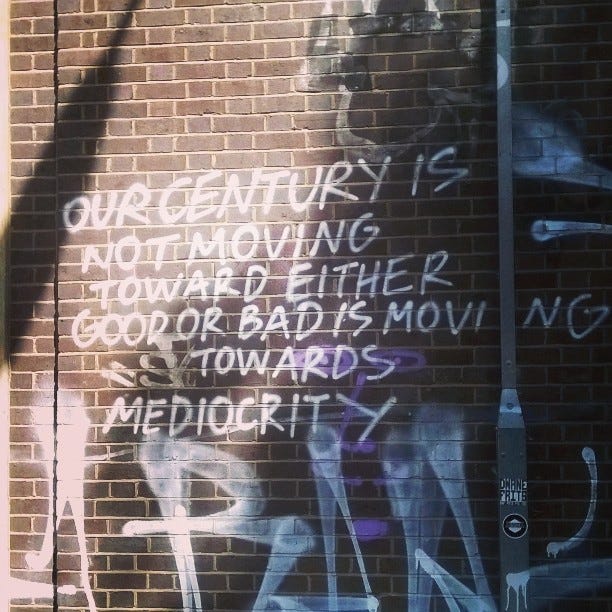 OUR CENTURY IS
NOT MOVING
TOWARD EITHER
GOOD OR BAD IS MOVING
TOWARDS
MEDIOCRITY